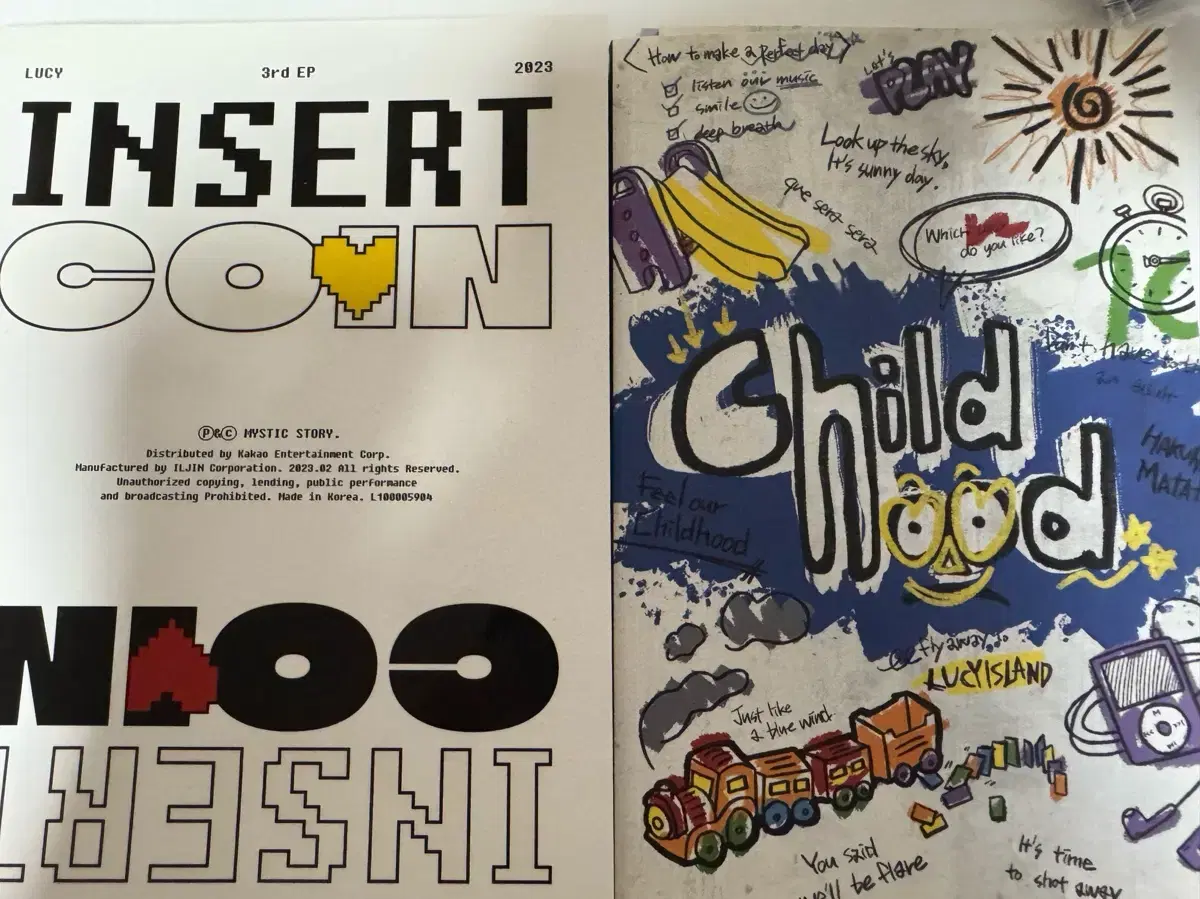 LUCY 3rd EP 2023
INSERT
COIN
Ⓟ&Ⓒ MYSTIC STORY.
Distributed by Kakao Entertainment Corp.
Manufactured by ILJIN Corporation. 2023.02 All rights Reserved.
Unauthorized copying, lending, public performance
and broadcasting Prohibited. Made in Korea. L100005904
COIN
INSERT
<How to make a perfect day>
listen our music
smile
deep breath
Let's
PLAY
Look up the sky,
It's sunny day.
que sera sera
Which
do you like?
Child
hood
Feel our
Childhood
HAKU
MATA
fly away to
LUCY ISLAND
Just like
a blue wind
M
You said
we'll be flare
It's time
to shot away